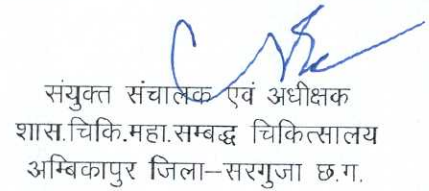 संयुक्त संचालक एवं अधीक्षक
शास.चिकि.महा.सम्बद्ध चिकित्सालय
अम्बिकापुर जिला–सरगुजा छ.ग.